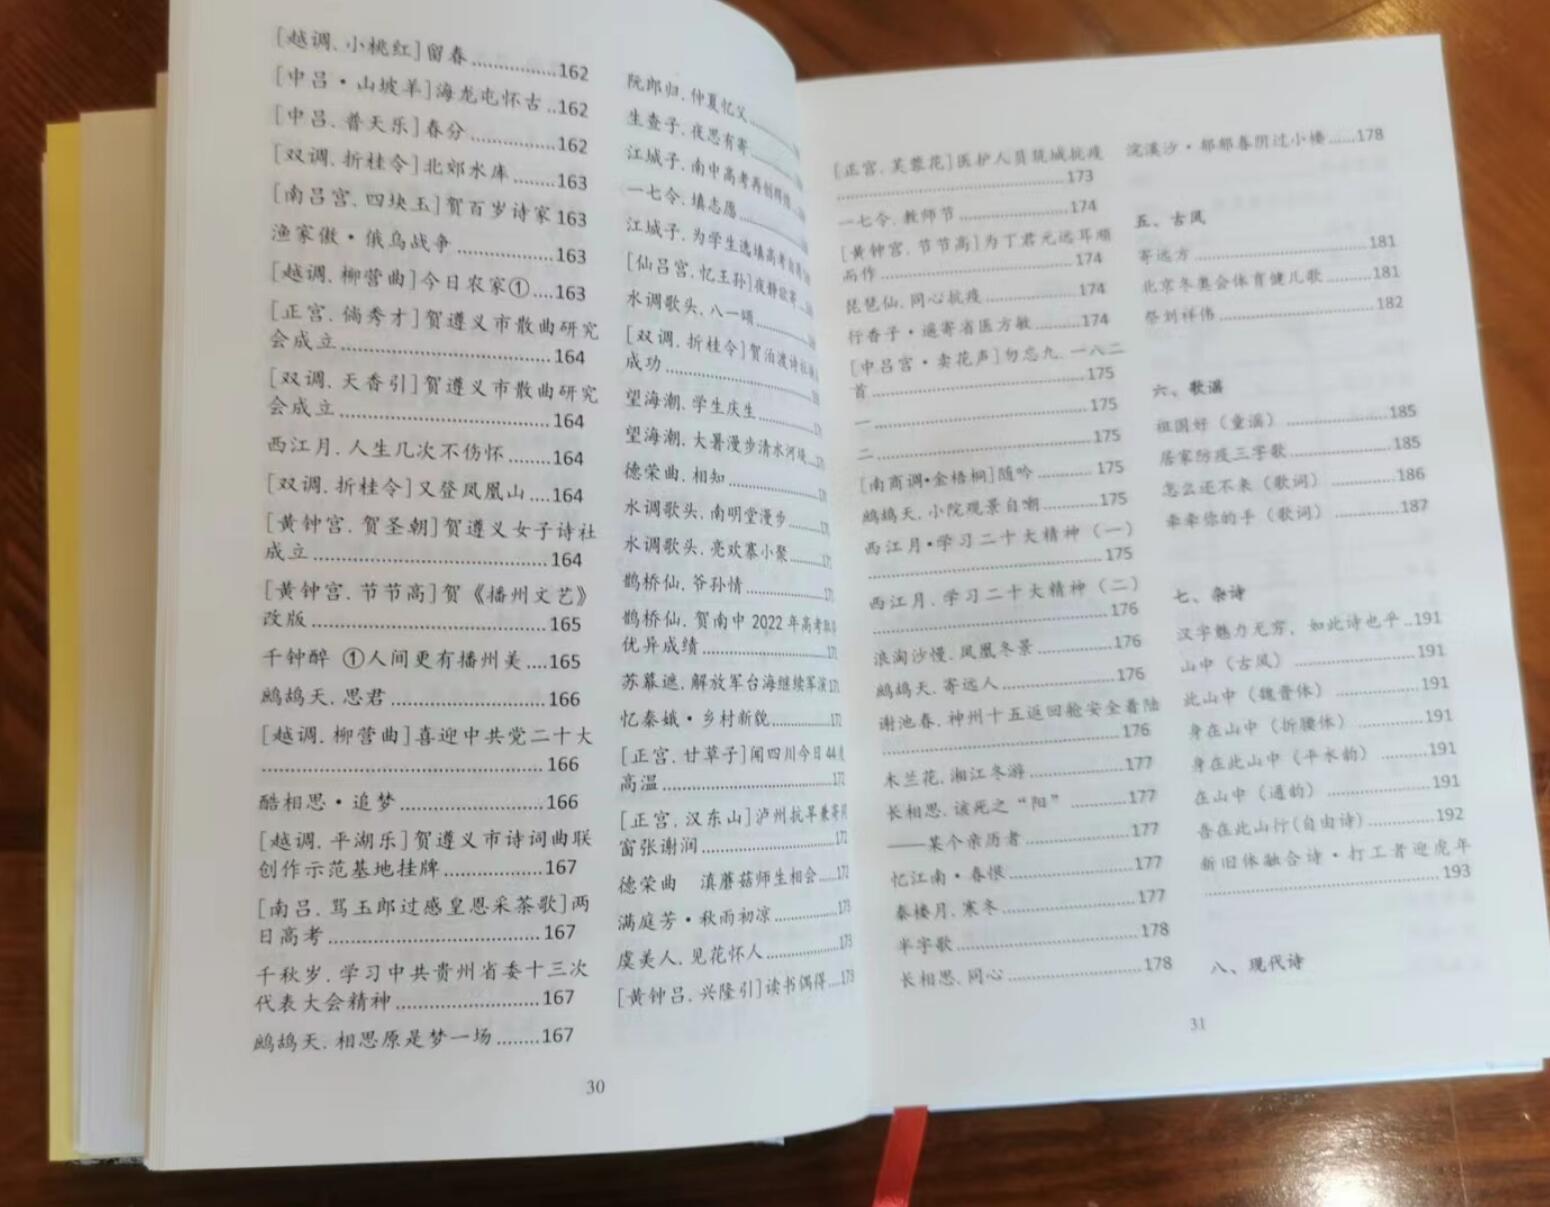 [越调.小桃红]留春................162
[中吕·山坡羊]海龙屯怀古..162
[中吕.普天乐]春分................162
[双调.折桂令]北郊水库........163
[南吕宫.四块玉]贺百岁诗家163
渔家傲·俄乌战争..................163
[越调.柳营曲]今日农家①....163
[正宫.倘秀才]贺遵义市散曲研究
会成立................................164
[双调.天香引]贺遵义市散曲研究
会成立................................164
西江月.人生几次不伤怀........164
[双调.折桂令]又登凤凰山....164
[黄钟宫.贺圣朝]贺遵义女子诗社
成立....................................164
[黄钟宫.节节高]贺《播州文艺》
改版....................................165
千钟醉 ①人间更有播州美....165
鹧鸪天.思君............................166
[越调.柳营曲]喜迎中共党二十大
............................................166
酷相思·追梦........................166
[越调.平湖乐]贺遵义市诗词曲联
创作示范基地挂牌................167
[南吕.骂玉郎过感皇恩采茶歌]两
日高考................................167
千秋岁.学习中共贵州省委十三次
代表大会精神........................167
鹧鸪天.相思原是梦一场........167
30
阮郎归.仲夏忆父
生查子.夜思有寄
江城子.南中高考再创
一七令.填志愿
江城子.为学生选填高考
[仙吕宫.忆王孙]夜静
水调歌头.八一颂
[双调.折桂令]贺泊渡诗社
成功
望海潮.学生庆生
望海潮.大暑漫步清水河堤
德荣曲.相知
水调歌头.南明堂漫步
水调歌头.亮欢寨小聚
鹊桥仙.爷孙情
鹊桥仙.贺南中2022年高考
优异成绩................171
苏幕遮.解放军台海继续军演171
忆秦娥·乡村新貌................172
[正宫.甘草子]闻四川今日44度
高温................................172
[正宫.汉东山]泸州抗旱兼寄同
窗张谢润........................172
德荣曲 滇蘑菇师生相会....172
满庭芳·秋雨初凉................173
虞美人.见花怀人................173
[黄钟吕.兴隆引]读书偶得....173
[正宫.芙蓉花]医护人员筑城抗疫
............................................173
一七令.教师节....................174
[黄钟宫.节节高]为丁君元远耳顺
而作................................174
琵琶仙.同心抗疫................174
行香子·遥寄省医方敏........174
[中吕宫·卖花声]勿忘九.一八二
首....................................175
一....................................175
二....................................175
[南商调·金梧桐]随吟........175
鹧鸪天.小院观景自嘲........175
西江月·学习二十大精神（一）
............................................175
西江月.学习二十大精神（二）
............................................176
浪淘沙慢.凤凰冬景............176
鹧鸪天.寄远人....................176
谢池春.神州十五返回舱安全着陆
............................................176
木兰花.湘江冬游................177
长相思.该死之“阳”............177
——某个亲历者....................177
忆江南·春恨........................177
秦楼月.寒冬........................177
半字歌................................178
长相思.同心........................178
31
浣溪沙·郁郁春阴过小楼......178
五、古风
寄远方................................181
北京冬奥会体育健儿歌........181
祭刘祥伟............................182
六、歌谣
祖国好（童谣）....................185
居家防疫三字歌....................185
怎么还不来（歌词）............186
牵牵你的手（歌词）............187
七、杂诗
汉字魅力无穷，如此诗也乎..191
山中（古风）........................191
此山中（魏晋体）................191
身在山中（折腰体）............191
身在此山中（平水韵）........191
在山中（通韵）....................191
吾在此山行(自由诗)............192
新旧体融合诗·打工者迎虎年
............................................193
八、现代诗